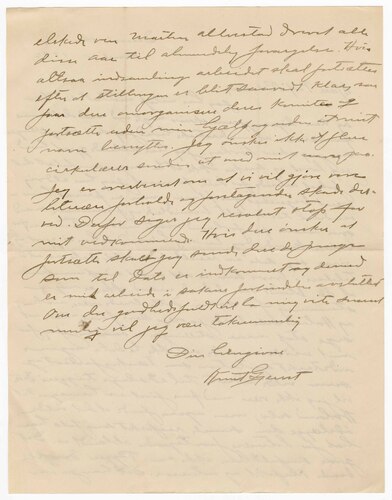 elskede ven Martin Allwestad drevet alle
disse aar til almindelig forargelse. Hvis
altsaa indsamlings arbeidet skal fortsættes
efter at stillingen er blit saavidt klar, saa
faar dere omorganisere deres komite og
fortsætte uden min hjælp og uden at mit
navn benyttes. Jeg ønsker ikke at flere
cirkulærer sendes ut med mit navn paa.
Jeg er overbevist om at vi vil gjøre vore
literære forhold og foretagender skade der-
ved. Derfor siger jeg resolut stop for
mit vedkommende. Hvis dere ønsker at
fortsætte skal jeg sende dere de penge
som til Dato er indkommet og dermed
er mit arbeide i sakens forbindelse avsluttet
Om du godhedsfuldt vil la mig vite snarest
mulig vil jeg være taknemmelig
Din hengivne
Knut Gjerset